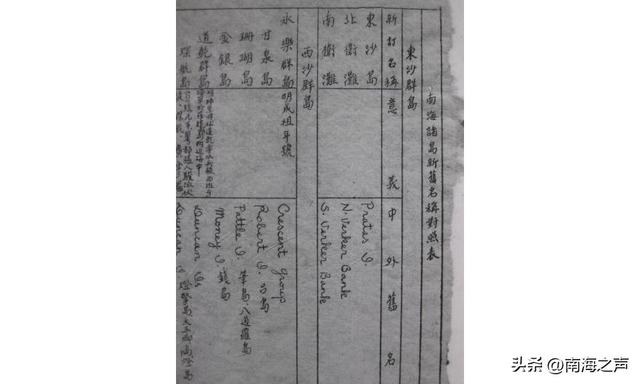 南海諸島新舊名稱對照表
東沙群島
新訂名稱 意義 中外舊名
東沙島 Prates I.
北衛灘 N. Verker Bank
南衛灘 S. Verker Bank
西沙群島
永樂群島 明成祖年號 Crescent group
甘泉島 Robert I.
珊瑚島 Pattle I. 筆島、八道羅島
金銀島 Money I. 錢島
道乾群島 Duncan Is
琛航島 Duncan I.
头条 @南海之声